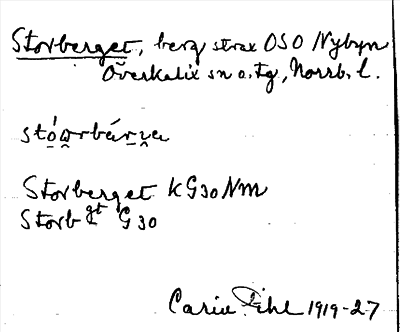 Storberget, berg strax OSO Nybyn
Överkalix sn o. tg, Norrb. l.
Storberget KG30Nm
Storb gt G30
Carin Pihl 1919-27